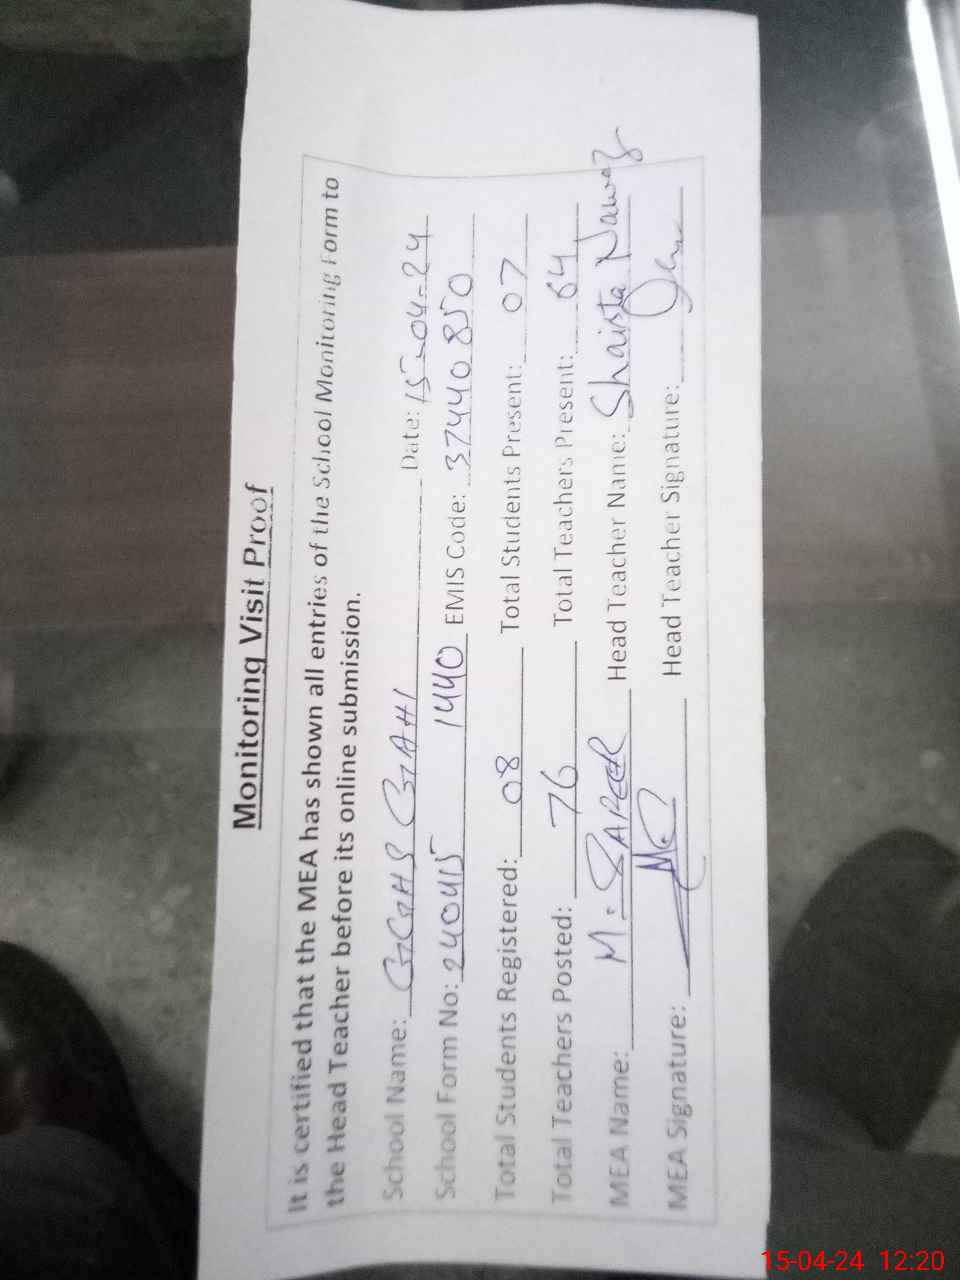 Monitoring Visit Proof
It is certified that the MEA has shown all entries of the School Monitoring Form to
the Head Teacher before its online submission.
School Name: GGHS GAHI Date: 15-04-24
School Form No: 240415 1440 EMIS Code: 37440850
Total Students Registered: 08 Total Students Present: 07
Total Teachers Posted: 76 Total Teachers Present: 64
MEA Name: M. Head Teacher Name: Shaista Nawaz
MEA Signature: Head Teacher Signature:
15-04-24 12:20